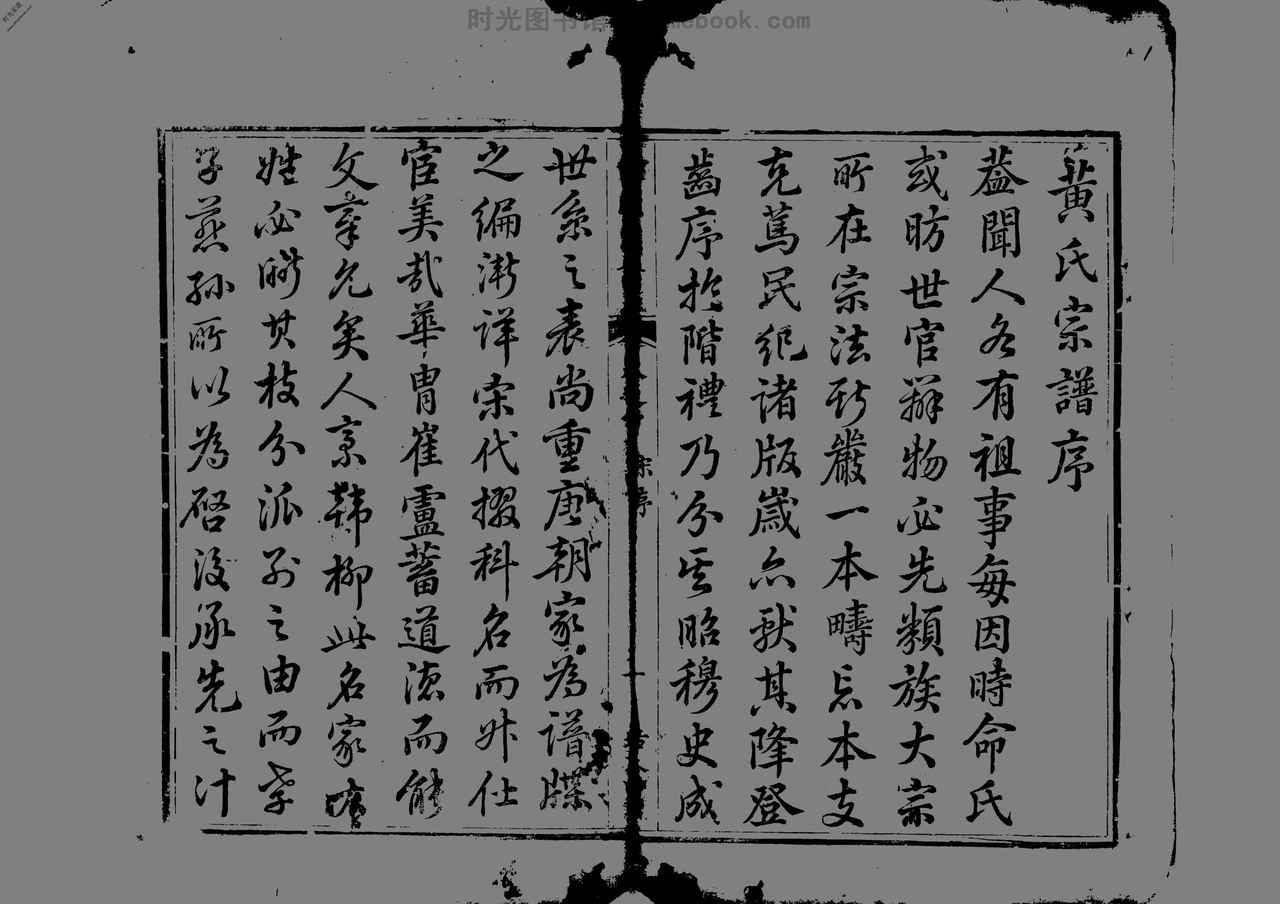 时光图书馆
cbook.com
黃氏宗譜序
葢聞人各有祖事每因時命氏
或昉世官辨物必先類族大宗
所在宗法斯嚴一本疇忘本支
克篤民紀諸版歲亦獻其降登
齒序於階禮乃分其昭穆史成
世系之表尚重唐朝家為譜牒
之編漸詳宋代掇科名而升仕
宦美哉華胄崔盧蓄道德而能
文章允矣人宗韓柳此名家
姓必晰其枝分派別之由而孝
子慈孫所以為啓後承先之計